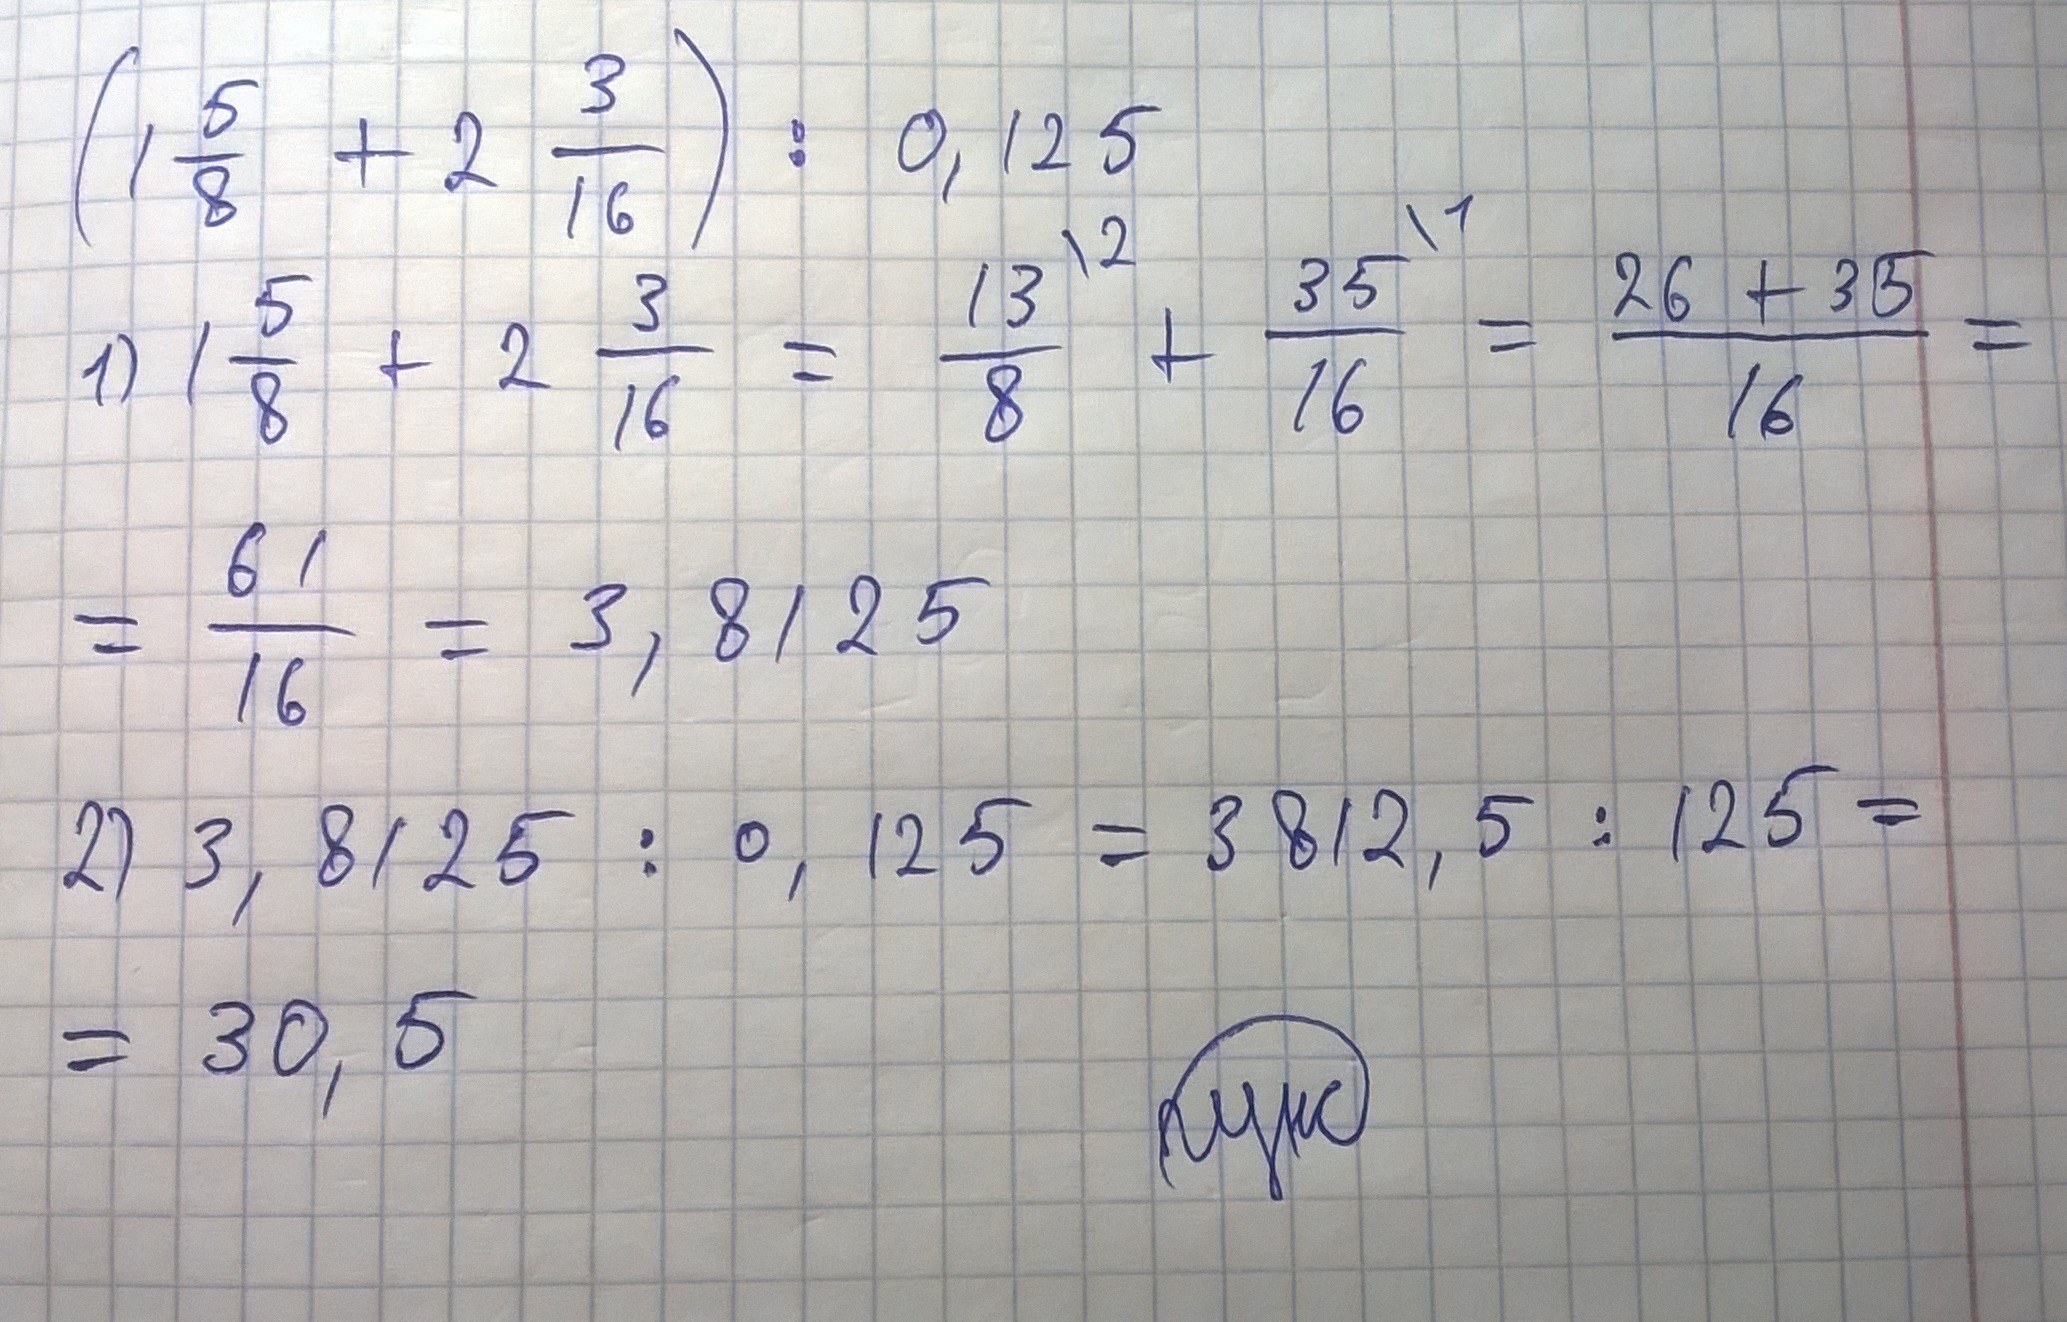 (1 5/8 + 2 3/16) : 0,125
1) 1 5/8 + 2 3/16 = 13/8 \2 + 35/16 \1 = 26 + 35/16 =
= 61/16 = 3,8125
2) 3,8125 : 0,125 = 3812,5 : 125 =
= 30,5